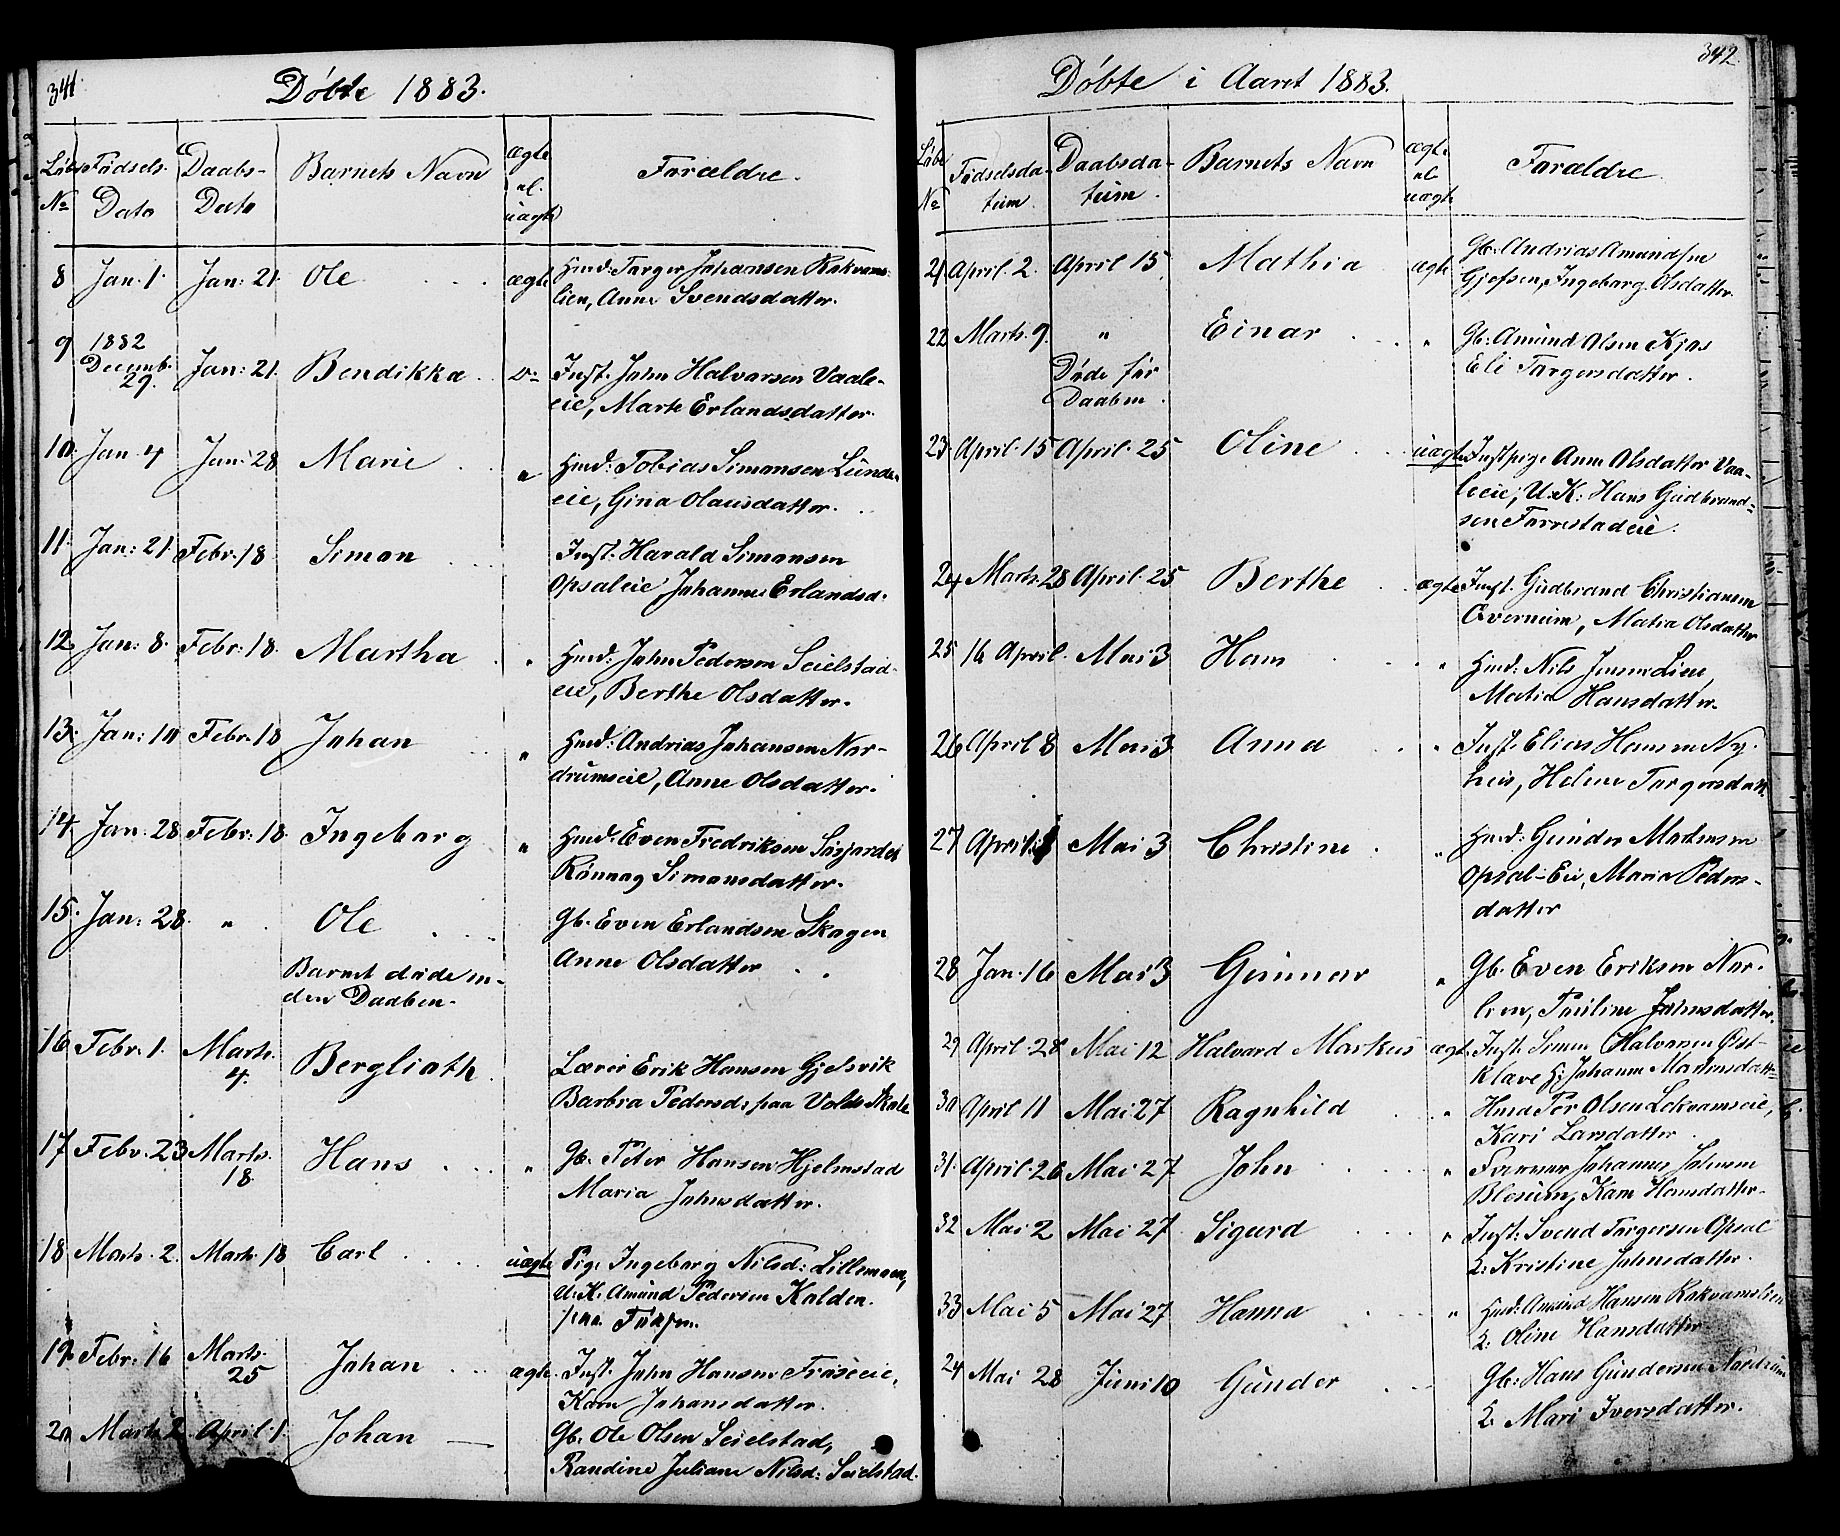 341
Døbte 1883.
Løbe No
Fødsels- Dato
Daabs- Dato
Barnets Navn
ægte el. uægte
Forældre.
8 Jan. 1 Jan: 21 Ole ægte Hmd: Torger Johansen Rakvams-
lien, Anne Svendsdatter.
9 1882 Decemb. 29. Jan: 21. Bendikka Do Inst. John Halvorsen Vaale-
eie, Marte Erlandsdatter.
10 Jan 4 Jan: 28 Marie " Hmd: Tobias Simonsen Lunde-
eie, Gina Olausdatter.
11. Jan: 21. Febr. 18 Simon Inst. Harald Simonsen
Opsaleie, Johanne Erlandsd.
12 Jan: 8. Febr: 18. Martha " Hmd: John Pedersen Seielstad-
eie, Berthe Olsdatter.
13. Jan: 10 Febr. 18 Johan " Hmd: Andrias Johansen Nor-
drumseie, Anne Olsdatter.
14. Jan: 28 Febr: 18. Ingeborg " Hmd: Even Fredriksen
Rønnog Simonsdatter.
15. Jan: 28. " Ole Gb. Even Erlandsen Skogen
Anne Olsdatter
Barnet døde in-
den Daaben.
16 Febr. 1. Marts. 4. Berglioth Lærer Erik Hansen Gjelsvik
Barbra Pedersd: paa Volds Skole
17 Febr. 23 Marts. 18. Hans " Gb. Peter Hansen Hjelmstad
Maria Johnsdatter.
18 Marts. 2. Marts. 18 Carl uægte Pige Ingeborg Nilsd: Lillemoen,
U.K. Amund Pedersen Kolden.
19 Febr. 16 Marts. 25 Johan ægte. Inst. John Hansen Frøseie,
Kari Johansdatter.
20 Marts 2. April 1. Johan Gb. Ole Olsen Seielstad,
Randine Juliane Nilsd: Seielstad.
342
Døbte i Aaret 1883.
Løbe No
Fødselsda- tum.
Daabsda- tum.
Barnets Navn
ægte el. uægte
Forældre.
21 April 2. April 15. Mathia ægte Gb: Andrias Amundsen
Gjefsen, Ingeborg Olsdatter.
22 Marts. 9. " Einar " Gb. Amund Olsen Kjos
Eli Torgersdatter.
Døde før
Daaben.
23. April. 15 April. 25 Oline uægte Inst pige Anne Olsdatter Vaa-
leeie; U.K: Hans Gudbrand-
sen Forrestadeie.
24 Marts. 28 April. 25. Berthe ægte Inst. Gudbrand Christiansen
Qvernum, Matia Olsdatter
25 16 April. Mai 3 Hans " Hmd: Nils Jensen Lien,
Matia Hansdatter.
26 April 8 Mai 3 Anna " Inst. Elias Hansen Ny-
heis, Helene Torgersdatt.
27 April. Mai 3 Christine " Hmd: Gunder Mortensen
Opsal-Eie, Maria Peders-
datter
28 Jan. 16 Mai 3 Gunnar " Gb. Even Eriksen Nor-
lien, Pauline Johnsdatter.
29 April. 28 Mai 12 Halvard Markus ægt. Inst. Simen Halvorsen Øst-
klave Johanne Mortensdatt-
30 April 11 Mai 27 Ragnhild " Hmd Per Olsen Lokvamseie,
Kari Larsdatter.
31. April. 26 Mai 27 John " Forener Johannes Johnsen
Blesum, Kari Hansdatter.
32 Mai 2 Mai 27 Sigurd " Inst: Svend Torgersen Opsal
Q: Kristine Johnsdatter.
33 Mai 5 Mai 27 Hanna " Hmd: Amund Hansen Rakvamslien
Q. Oline Hansdatter
24 Mai 28 Juni 10 Gunder Gb: Hans Gundersen Nordrum
Q. Mari Iversdatter.